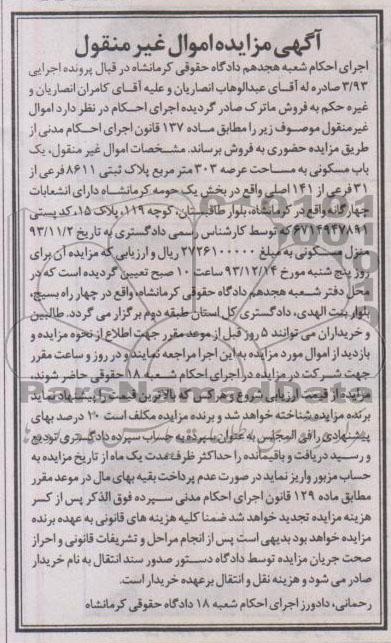 آگهی مزایده اموال غیر منقول
اجرای احکام شعبه هجدهم دادگاه حقوقی کرمانشاه در قبال پرونده اجرایی
۳/۹۳ صادره له آقای عبدالوهاب انصاریان و علیه آقای کامران انصاریان و
غیره حکم به فروش ماترک صادر گردیده اجرای احکام در نظر دارد اموال
غیرمنقول موصوف زیر را مطابق ماده ۱۳۷ قانون اجرای احکام مدنی از
طریق مزایده حضوری به فروش برساند. مشخصات اموال غیر منقول، یک
باب مسکونی به مساحت عرصه ۳۰۳ متر مربع پلاک ثبتی ۸۶۱۱ فرعی از
۳۱ فرعی از ۱۴۱ اصلی واقع در بخش یک حومه کرمانشاه دارای انشعابات
چهارگانه واقع در کرمانشاه، بلوار طاقبستان، کوچه ۱۱۹، پلاک ۱۵، کد پستی
۶۷۱۴۹۴۷۸۹۱ که توسط کارشناس رسمی دادگستری به تاریخ ۹۳/۱۱/۲
منزل مسکونی به مبلغ ۲۷۲۶۱۰۰۰۰۰ ریال و ارزیابی که مزایده آن برای
روز پنج شنبه مورخ ۹۳/۱۲/۱۴ ساعت ۱۰ صبح تعیین گردیده است که در
محل دفتر شعبه هجدهم دادگاه حقوقی کرمانشاه، واقع در چهار راه بسیج،
بلوار بنت الهدی، دادگستری کل استان طبقه دوم برگزار می گردد. طالبین
و خریداران می توانند ۵ روز قبل از موعد مقرر جهت اطلاع از نحوه مزایده و
بازدید از اموال مورد مزایده به این اجرا مراجعه نمایند و در روز و ساعت مقرر
جهت شرکت در مزایده در اجرای احکام شعبه ۱۸ حقوقی حاضر شوند،
مزایده از قیمت ارزیابی شروع و هر کس که بالاترین قیمت را پیشنهاد نماید
برنده مزایده شناخته خواهد شد و برنده مزایده مکلف است ۱۰ درصد بهای
پیشنهادی را فی المجلس به عنوان سپرده به حساب سپرده دادگستری تودیع
و رسید دریافت و باقیمانده را حداکثر ظرف مدت یک ماه از تاریخ مزایده به
حساب مزبور واریز نماید در صورت عدم پرداخت بقیه بهای مال در موعد مقرر
مطابق ماده ۱۲۹ قانون اجرای احکام مدنی سپرده فوق الذکر پس از کسر
هزینه مزایده تجدید خواهد شد ضمنا کلیه هزینه های قانونی به عهده برنده
مزایده خواهد بود بدیهی است پس از انجام مراحل و تشریفات قانونی و احراز
صحت جریان مزایده توسط دادگاه دستور صدور سند انتقال به نام خریدار
صادر می شود و هزینه نقل و انتقال بر عهده خریدار است.
رحمانی، دادورز اجرای احکام شعبه ۱۸ دادگاه حقوقی کرمانشاه
ParsNamadData